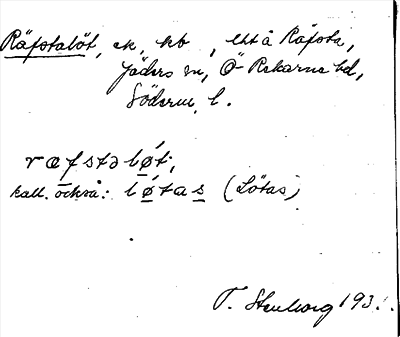 Räfstalöt, ek, hb , ett å Räfsta,
Jäders sn, Ö- Rekarne hd,
Söderm. l.
ræfstəlǿ̱t,
kall. också: lǿ̱tas̱ (Lötas)
T. Stenborg 193